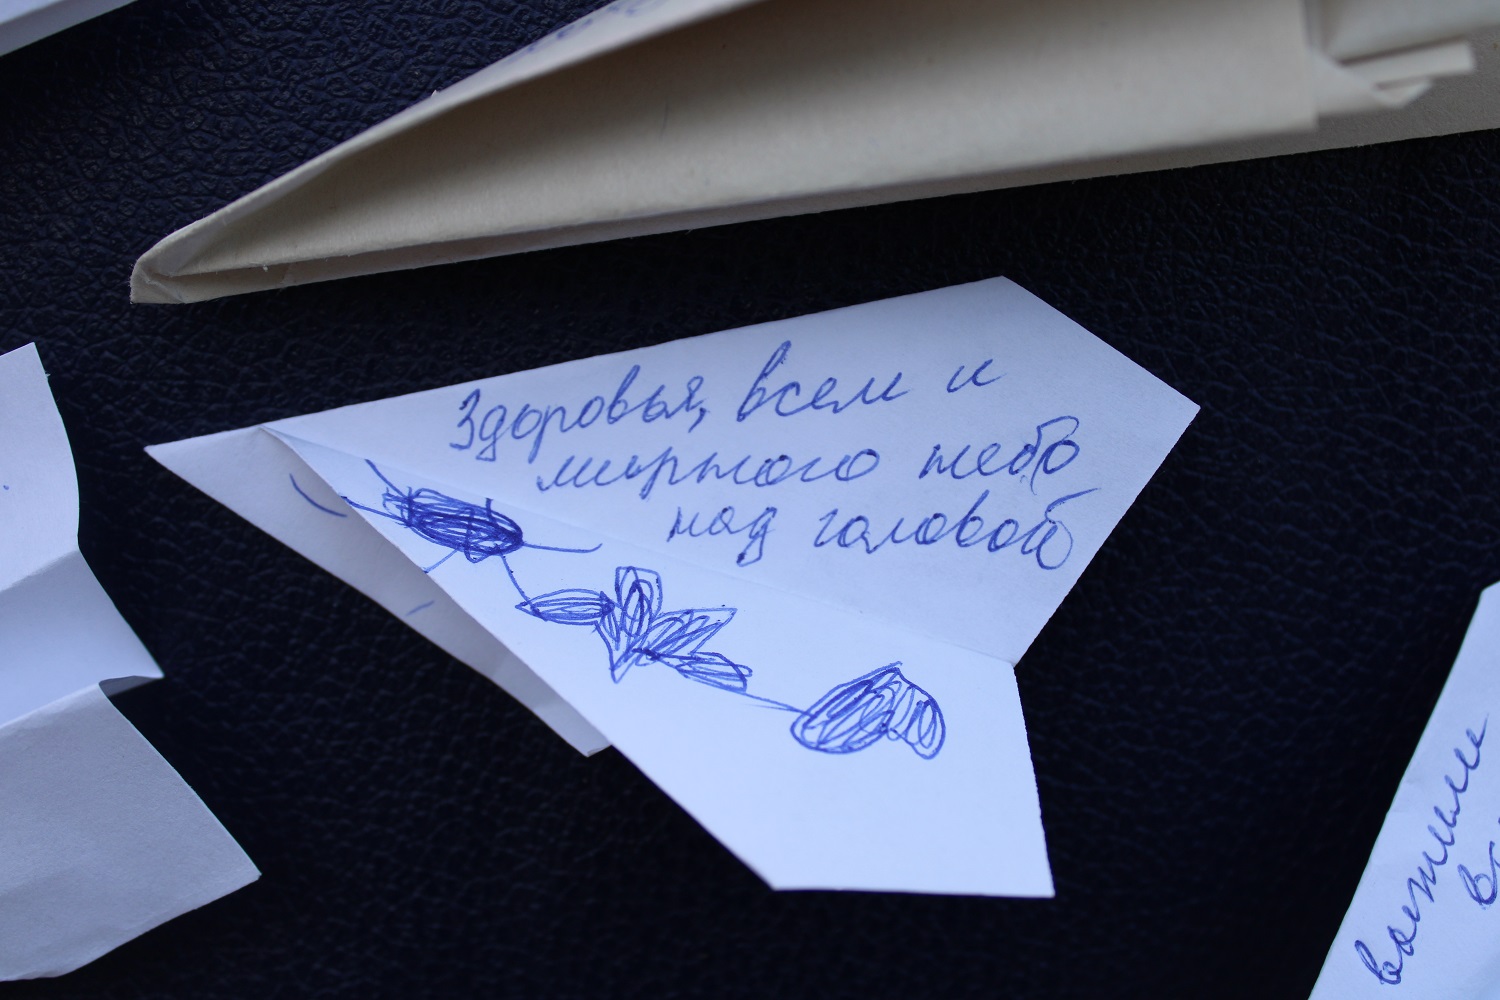 Здоровья, всем и
мирного небо
над головой